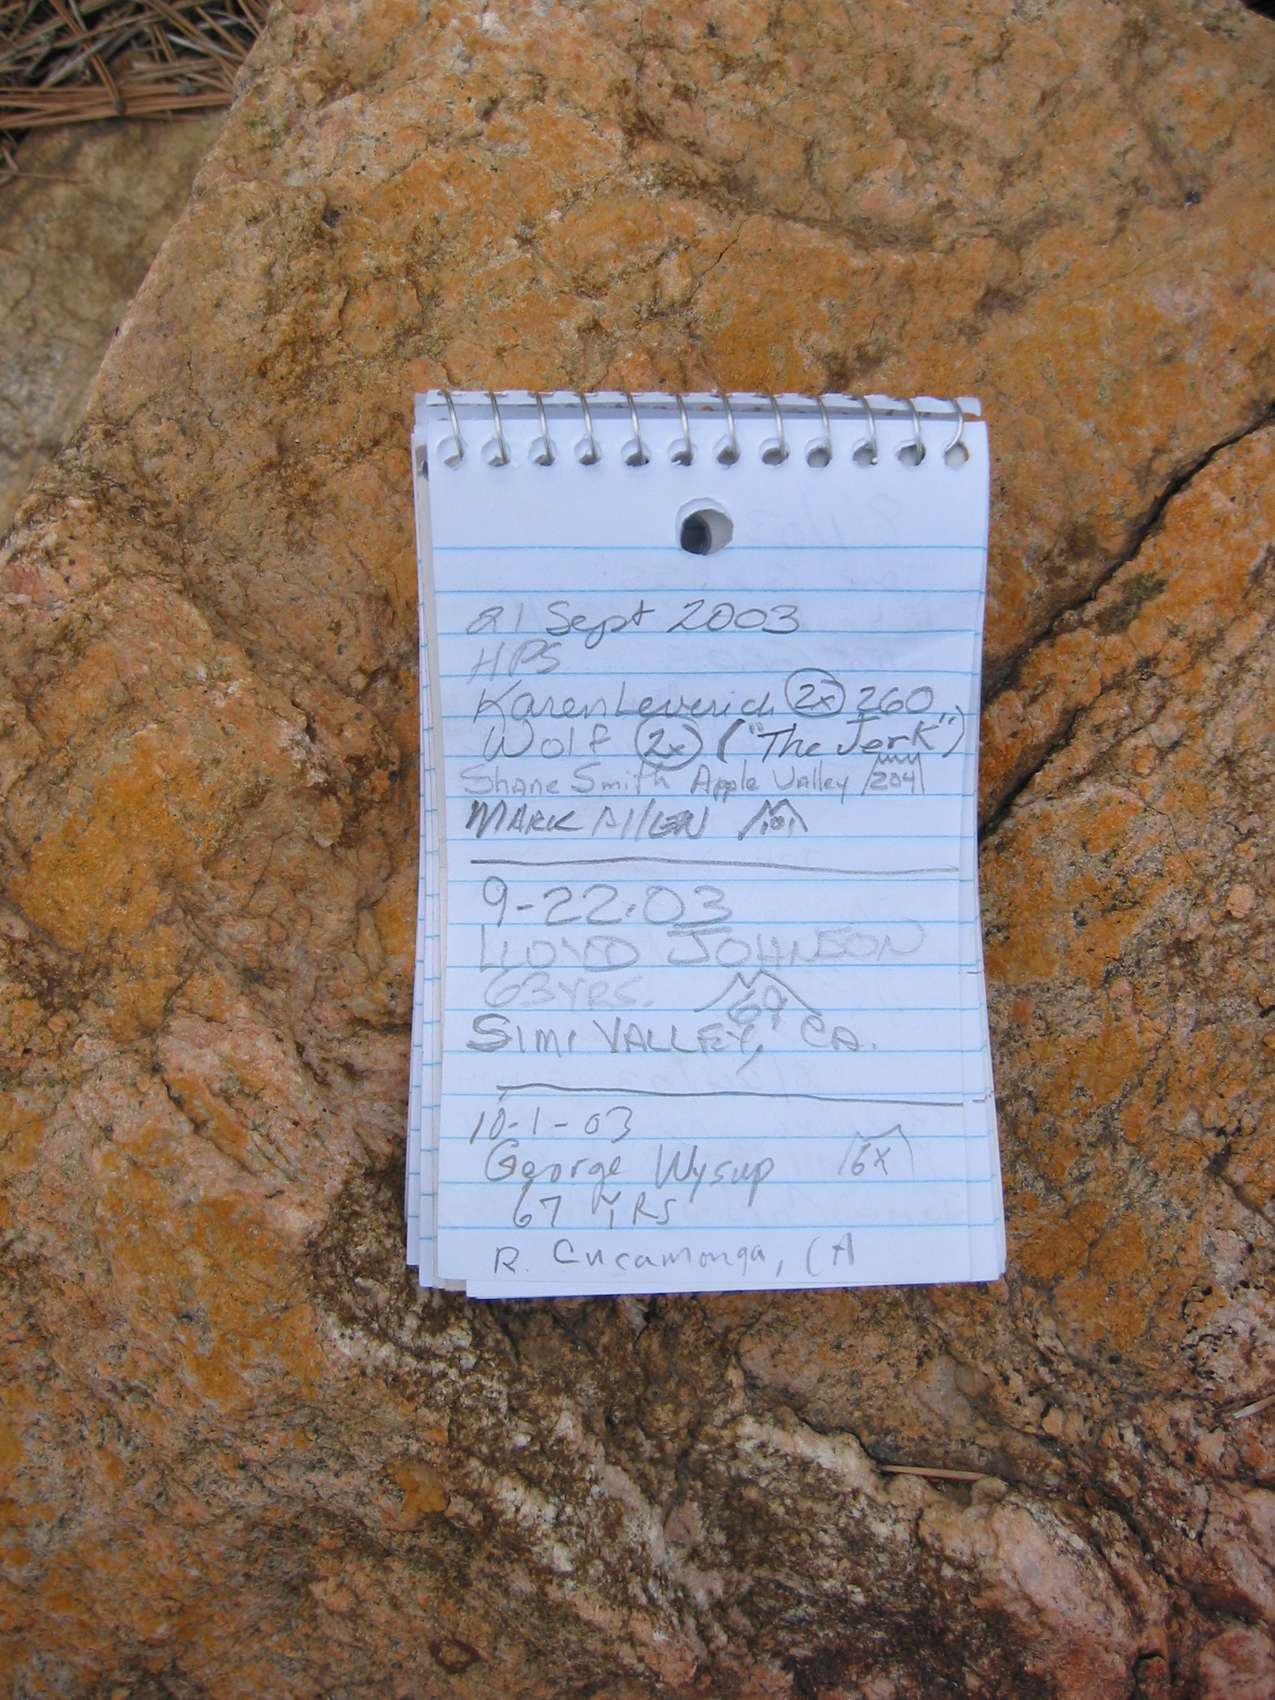 21 Sept 2003
HPS
Karen Leverich 2x 260
Wolf 2x ("The Jerk")
Shane Smith Apple Valley 204
MARK AllEN 101
9-22-03
LLOYD JOHNSON
63 YRS. 69
SIMI VALLEY, CA.
10-1-03
George Wysup 6x
67 YRS
R. Cucamonga, CA